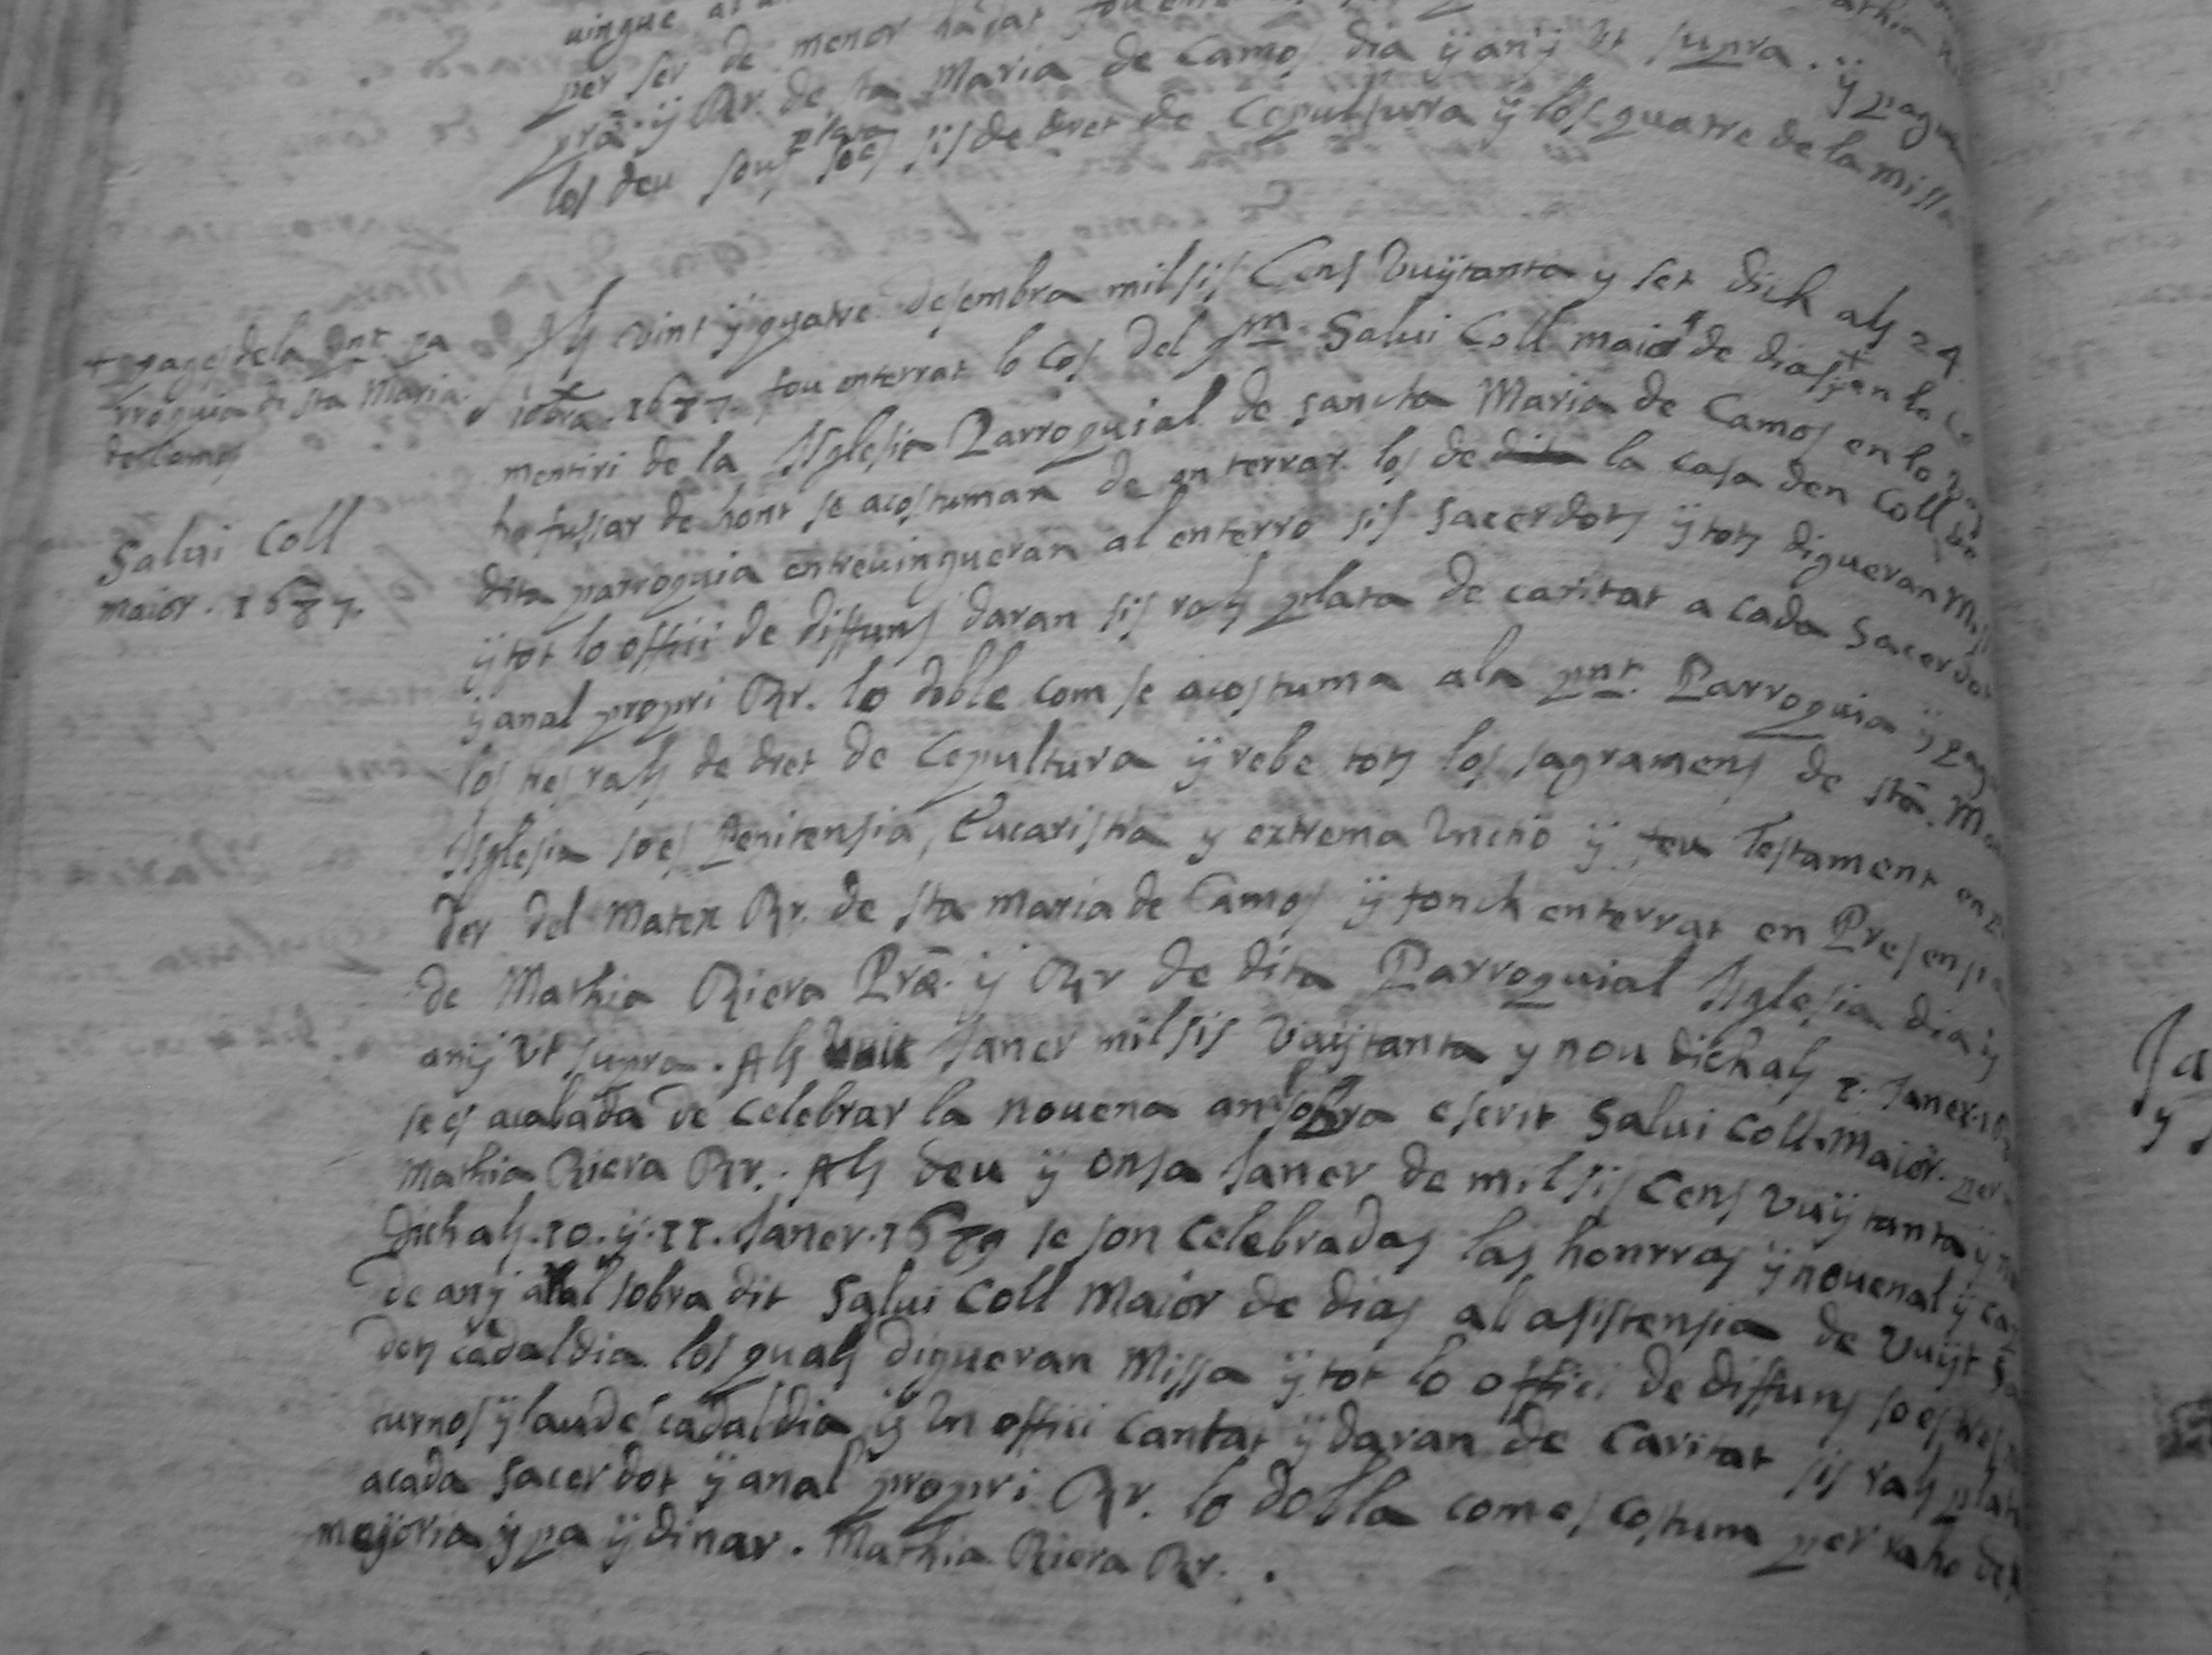 uingue al
per ser de menor hadat fou
pra. ÿ Rr. de sta Maria de Camos dia ÿ anÿ Vt supra. ÿ pagua
los deu sous plata soes sis de dret de Cepultura ÿ los quatre de la missa
Als vint ÿ quatre desembra mil sis Cens Vuÿtanta y set dich als 24
+ pages de la pnt. pa
rroquia de sta Maria
de Camos
Salui Coll
maior. 1687.
10bra. 1687. fou enterrat lo cos del qm. Salui Coll maior de dias + en lo Ce
mentiri de la Iglesia Parroquial de sancta Maria de Camos en lo
ho fussar de hont se acostuman de enterrar los de dita la casa den Coll de
dita parroquia entreuingueran al enterro sis sacerdots ÿ tots digueran Mis
ÿ tot lo offici de diffuns daran sis rals plata de caritat a cada Sacerdot
ÿ anal propri Rr. lo doble com se acostuma a la pnt. Parroquia ÿ pag
los tres rals de dret de Cepultura ÿ rebe tots los sagramens de sta. Ma
Iglesia soes Penitensia, Eucaristia y extrema Vnctio ÿ feu Testament en p
der del matex Rr. de sta maria de Camos ÿ fonch enterrat en Presensia
de Mathia Riera Pra. ÿ Rr de dita Parroquial Iglesia dia ÿ
anÿ Vt supra. Als Vuit Janer mil sis Vuÿtanta y nou dich als 8. Janer. 16
se es acabada de Celebrar la nouena an sobra escrit Salui Coll Maior. per
Mathia Riera Rr. Als deu ÿ onsa Janer de mil sis Cens Vuÿtanta ÿ n
dich als. 10. ÿ. 11. Janer. 1689 se son Celebradas las honrras ÿ nouenal ÿ ca
de anÿ a tal sobra dit Salui Coll Maior de dias ab asistensia de Vuÿt Sa
dots cadaldia los quals digueran Missa ÿ tot lo offici de diffuns soes tres
turnos ÿ laudes cadaldia ÿ Vn offici Cantat ÿ daran de Caritat sis rals plata
a cada sacerdot ÿ anal propri Rr. lo dobla com es costum per raho de la
majoria ÿ pa ÿ dinar. Mathia Riera Rr.
Ja
y